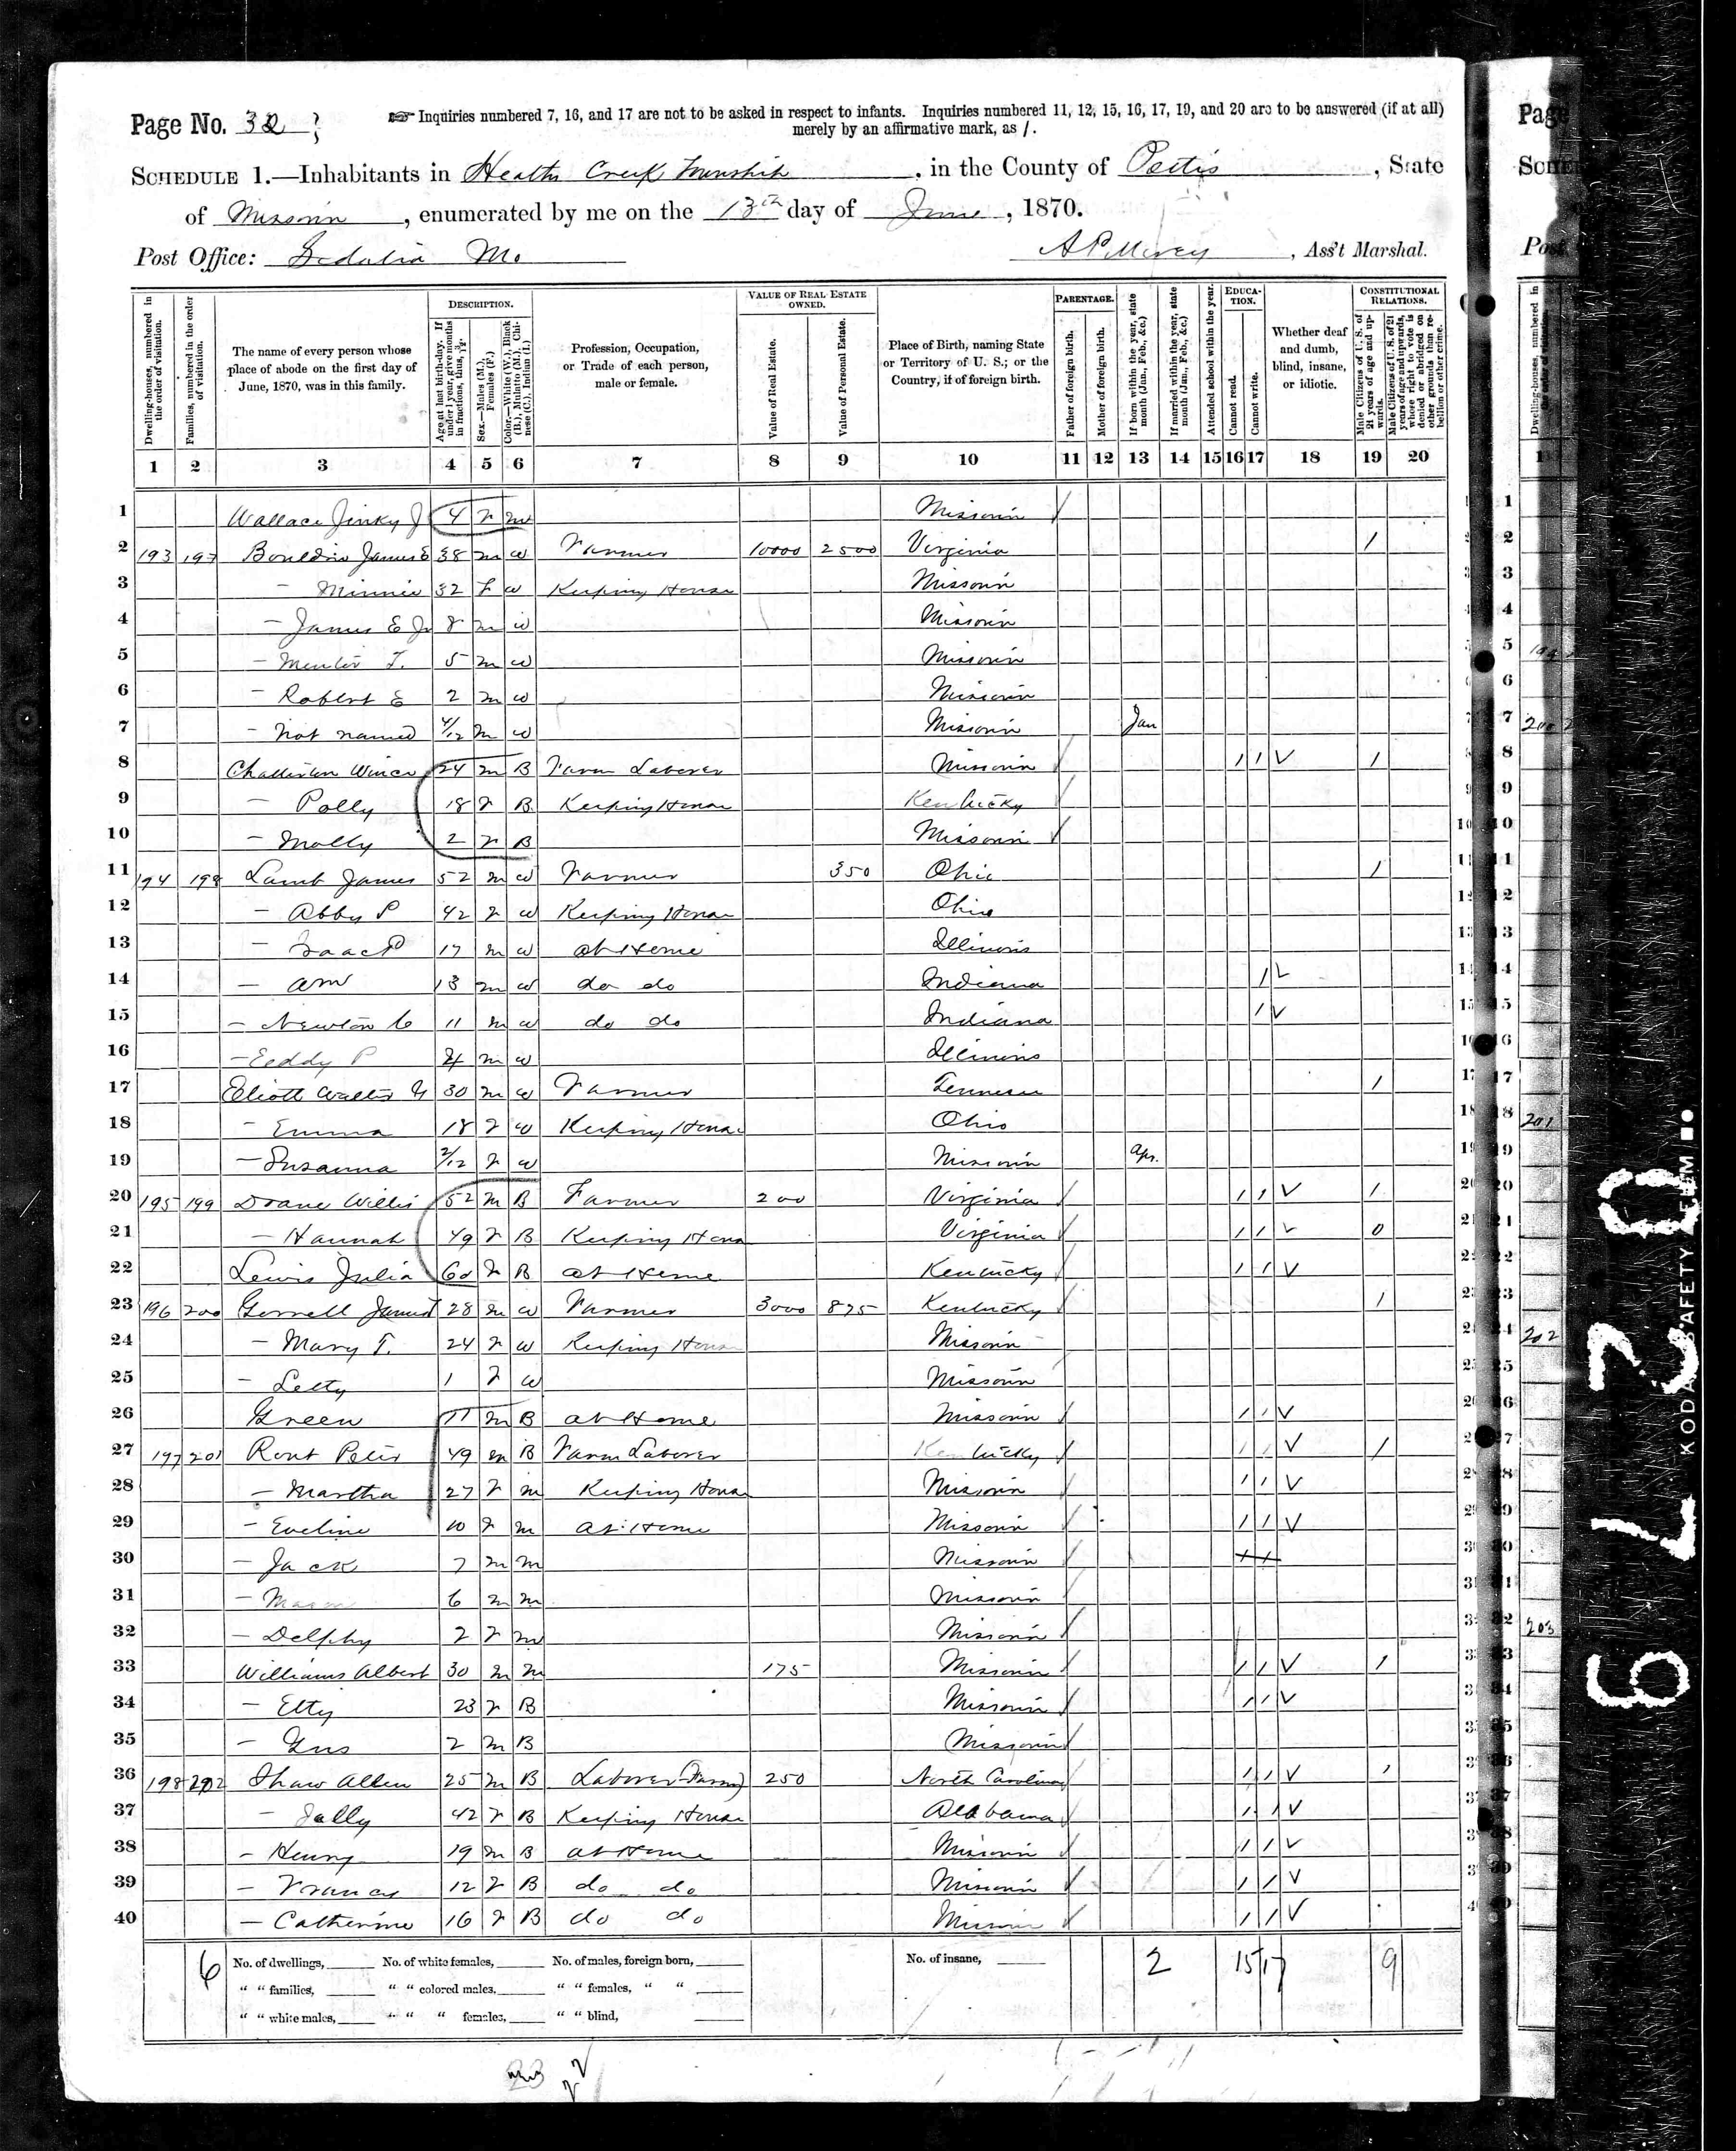 Page No. 32
Inquiries numbered 7, 16, and 17 are not to be asked in respect to infants. Inquiries numbered 11, 12, 15, 16, 17, 19, and 20 are to be answered (if at all)
merely by an affirmative mark, as /.
SCHEDULE 1.—Inhabitants in Heaths Creek Township, in the County of Pettis, State
of Missouri, enumerated by me on the 13th day of June, 1870.
Post Office: Sedalia Mo
, Ass't Marshal.
Dwelling-houses, numbered in the order of visitation.
Families, numbered in the order of visitation.
The name of every person whose place of abode on the first day of June, 1870, was in this family.
DESCRIPTION.
Age at last birth-day. If under 1 year, give months in fractions, thus, 3/12.
Sex.—Males (M.), Females (F.)
Color.—White (W.), Black (B.), Mulatto (M.), Chinese (C.), Indian (I.)
Profession, Occupation, or Trade of each person, male or female.
VALUE OF REAL ESTATE OWNED.
Value of Real Estate.
Value of Personal Estate.
Place of Birth, naming State or Territory of U. S.; or the Country, if of foreign birth.
PARENTAGE.
Father of foreign birth.
Mother of foreign birth.
If born within the year, state month (Jan., Feb., &c.)
If married within the year, state month (Jan., Feb., &c.)
Attended school within the year.
EDUCATION.
Cannot read.
Cannot write.
Whether deaf and dumb, blind, insane, or idiotic.
CONSTITUTIONAL RELATIONS.
Male Citizens of U. S. of 21 years of age and upwards.
Male Citizens of U. S. of 21 years of age and upwards, whose right to vote is denied or abridged on other grounds than rebellion or other crime.
1 2 3 4 5 6 7 8 9 10 11 12 13 14 15 16 17 18 19 20
1 Wallace Jinky J 4 F M Missouri /
2 193 197 Bouldin James E 38 M W Farmer 10000 2500 Virginia /
3 — Minnie 32 F W Keeping House Missouri
4 — James E Jr 8 M W Missouri
5 — T. 5 M W Missouri
6 — Robert E 2 M W Missouri
7 — Not named 4/12 M W Missouri Jan
8 24 M B Farm Laborer Missouri / / / V /
9 — Polly 18 F B Keeping House Kentucky /
10 — Molly 2 F B Missouri /
11 194 198 Lamb James 52 M W Farmer 350 Ohio /
12 — Abby P 42 F W Keeping House Ohio
13 — Isaac P 17 M W at Home Illinois
14 — 13 M W do do Indiana / V
15 — Newton C 11 M W do do Indiana / V
16 — Eddy P 4 M W Illinois
17 Eliott Walter 30 M W Farmer Tennessee /
18 — Emma 18 F W Keeping House Ohio
19 — Susanna 2/12 F W Missouri Apr.
20 195 199 Willis 52 M B Farmer 200 Virginia / / / V /
21 — Hannah 49 F B Keeping House Virginia / / / V 0
22 Lewis Julia 60 F B at Home Kentucky / / / V
23 196 200 Gorrell James 28 M W Farmer 3000 875 Kentucky / /
24 — Mary T. 24 F W Keeping House Missouri
25 — Letty 1 F W Missouri
26 Green 11 M B at Home Missouri / / / V
27 197 201 Rout Peter 49 M B Farm Laborer Kentucky / / / V /
28 — Martha 27 F M Keeping House Missouri / / / V
29 — Eveline 10 F M at Home Missouri / / / V
30 — Jack 7 M M Missouri /
31 — 6 M M Missouri /
32 — Delphy 2 F M Missouri /
33 Williams Albert 30 M M 175 Missouri / / / V /
34 — Etty 23 F B Missouri / / / V
35 — Gus 2 M B Missouri /
36 198 202 Shaw Allen 25 M B Laborer (Farm) 250 North Carolina / / / V /
37 — 42 F B Keeping House Alabama / / / V
38 — Henry 19 M B at Home Missouri / / / V
39 — Francy 12 F B do do Missouri / / / V
40 — Catherine 16 F B do do Missouri / / / V
6 No. of dwellings, No. of white females, No. of males, foreign born, No. of insane, 2 15 17 9
" " families, " " colored males, " " females, " "
" " white males, " " " females, " " blind,
23
KODAK SAFETY FILM